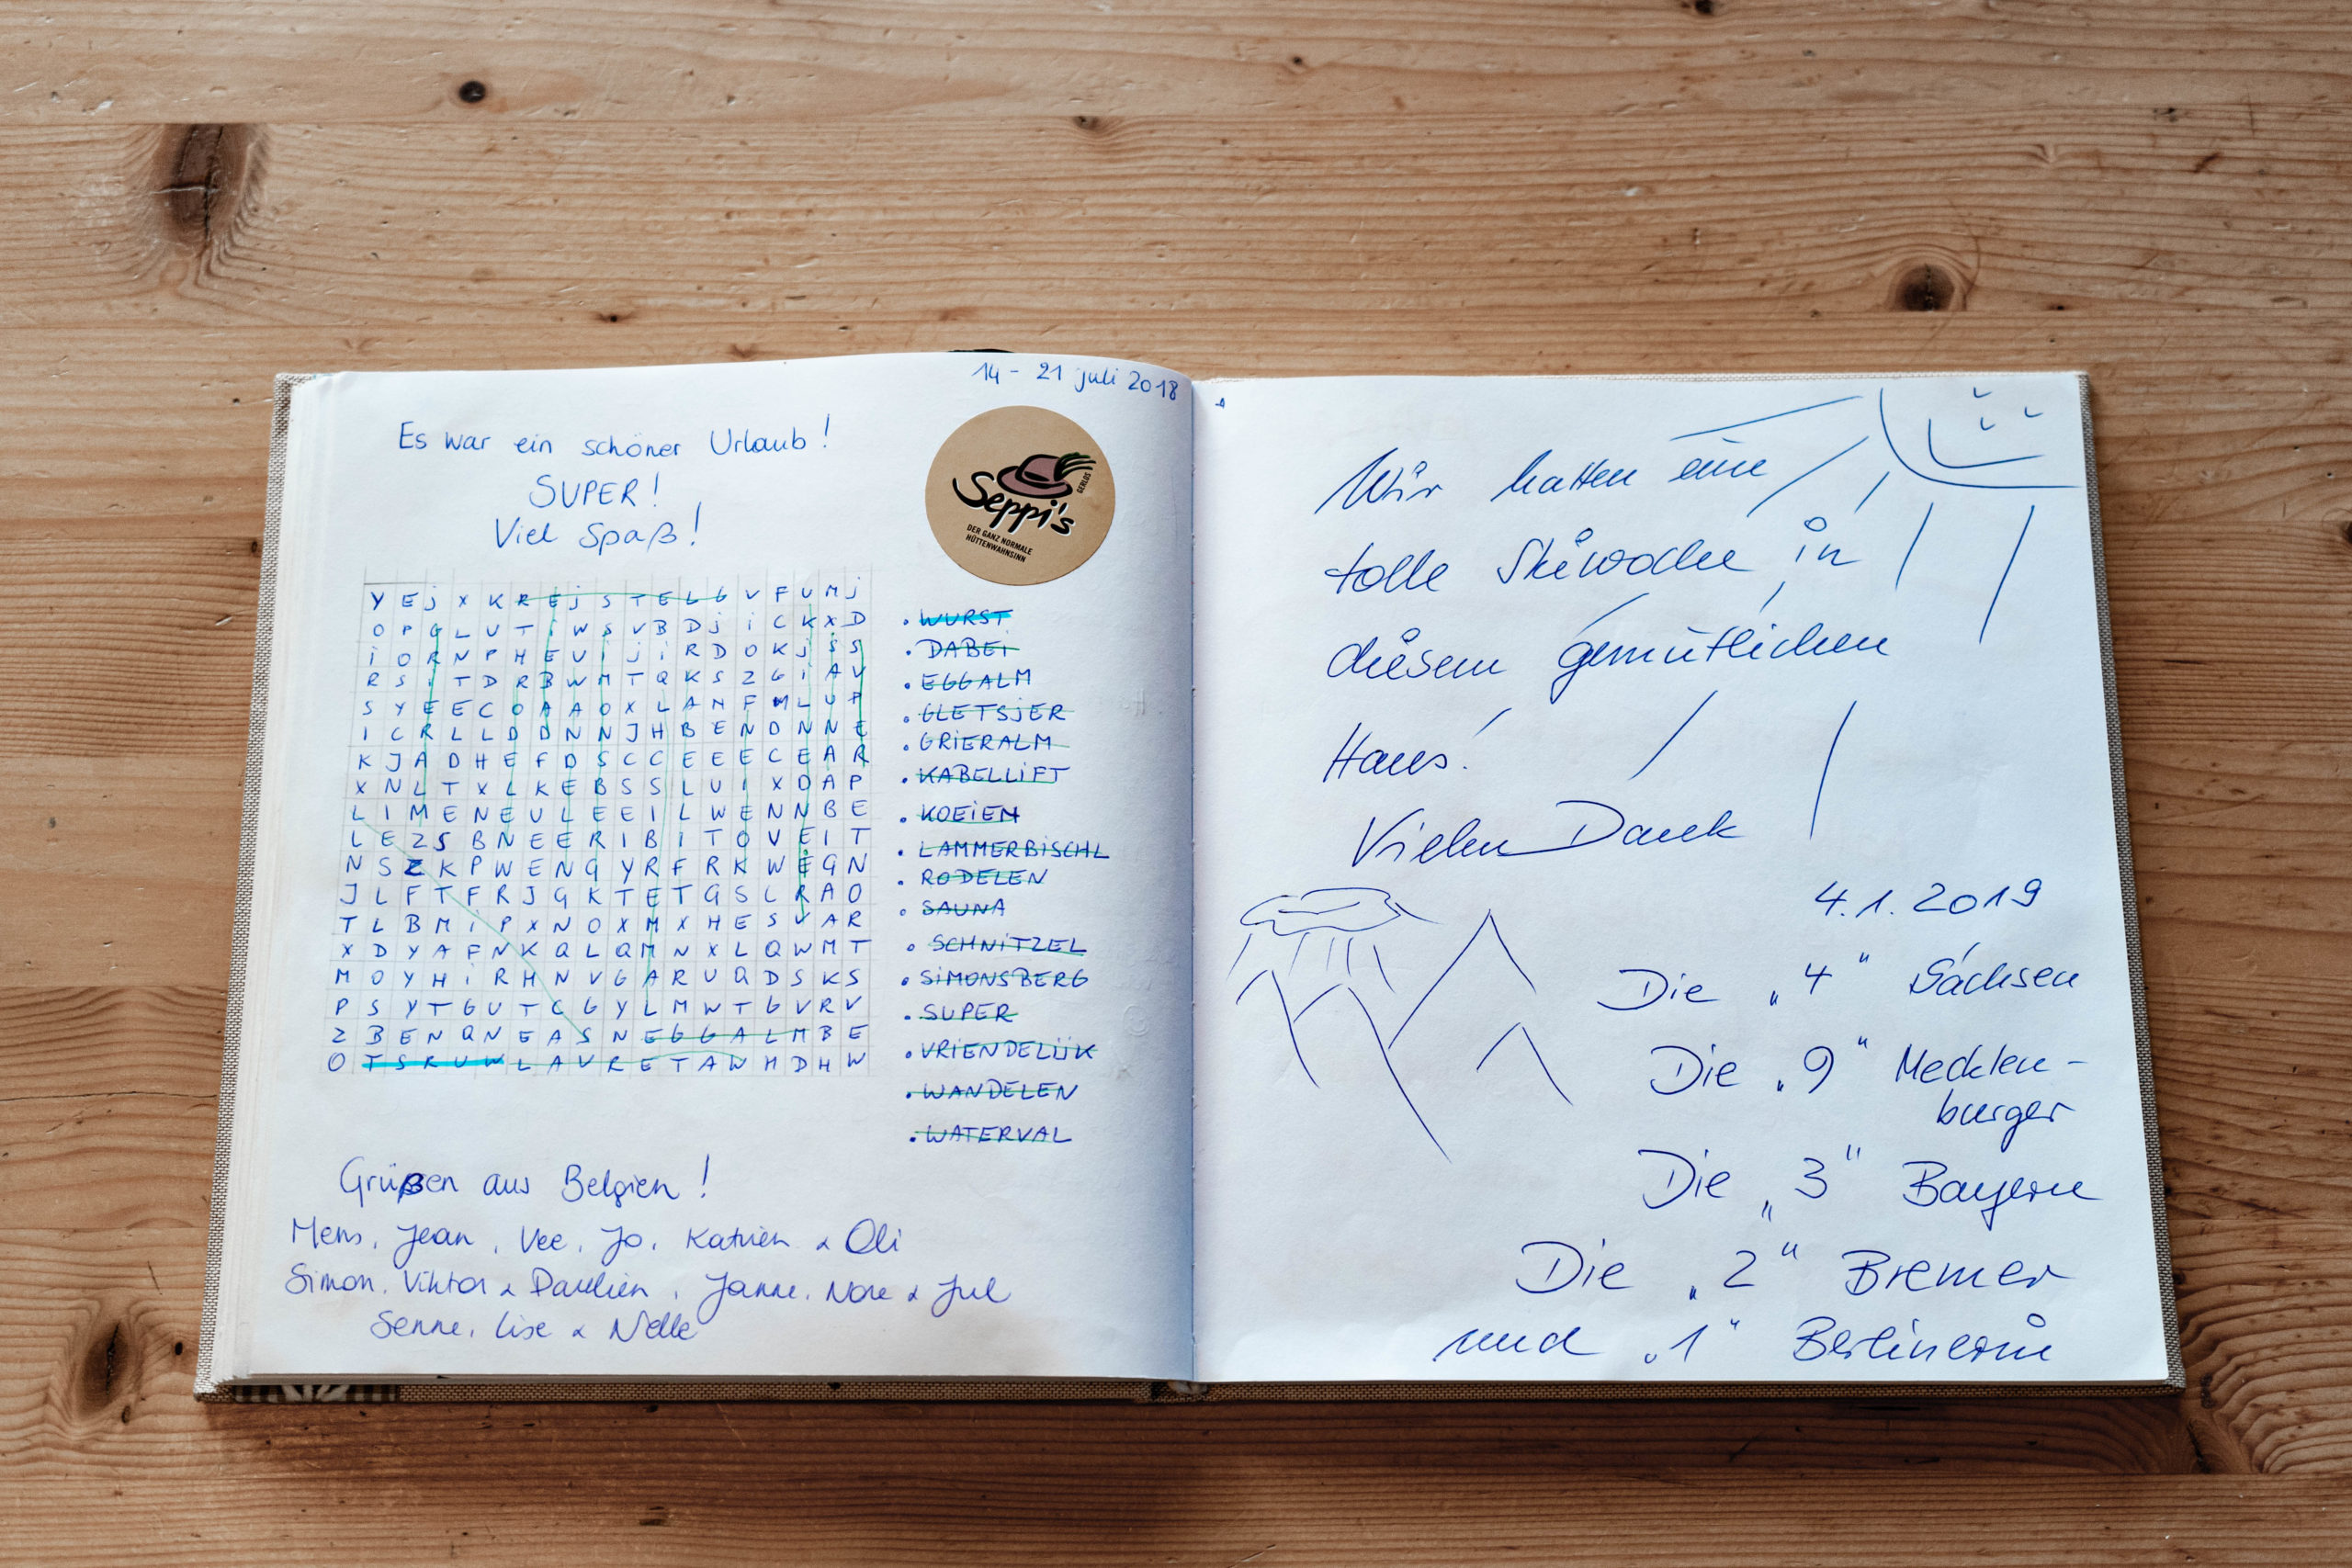 14 - 21 juli 2018
Es war ein schöner Urlaub!
SUPER!
Viel Spaß!
Seppi's
GERLOS
DER GANZ NORMALE
HÜTTENWAHNSINN
Y E j X K R E j S T E L G V F U M j
O P G L U T i W S V B D j i C K X D
i O R N P H E U i j i R D O K j S S
R S i T D R B W M T Q K S Z G i A V
S Y E E C O A A O X L A N F M L U P
I C R L L D D N N J H B E N D N N E
K J A D H E F D S C C E E E C E A R
X N L T X L K E B S S L U I X D A P
L I M E N E U L E E I L W E N N B E
L E Z S B N E E R I B I T O V E I T
N S Z K P W E N G Y R F R K W E G N
J L F T F R J G K T E T G S L R A O
T L B M i P X N O X M X H E S V A R
X D Y A F N K Q L Q M N X L Q W M T
M O Y H i R H N V G A R U Q D S K S
P S Y T G U T C G Y L M W T G V R V
Z B E N Q N E A S N E G G A L M B E
O T S R U W L A V R E T A W M D H W
• WURST
• DABEi
• EGGALM
• GLETSjER
• GRIERALM
• KABELLiFT
• KOEiEN
• LAMMERBiSCHL
• RODELEN
• SAUNA
• SCHNiTZEL
• SiMONSBERG
• SUPER
• VRIENDELIJK
• WANDELEN
• WATERVAL
Grüßen aus Belgien!
Mens, Jean, Vee, Jo, Katrien & Oli
Simon, Viktor & Paulien, Janne, Nore & Jul
Senne, Lise & Nelle
Wir hatten eine
tolle Skiwoche in
diesem gemütlichen
Haus!
Vielen Dank
4.1.2019
Die „4“ Sachsen
Die „9“ Mecklen-
burger
Die „3“ Bayern
Die „2“ Bremer
und „1“ Berlinerin